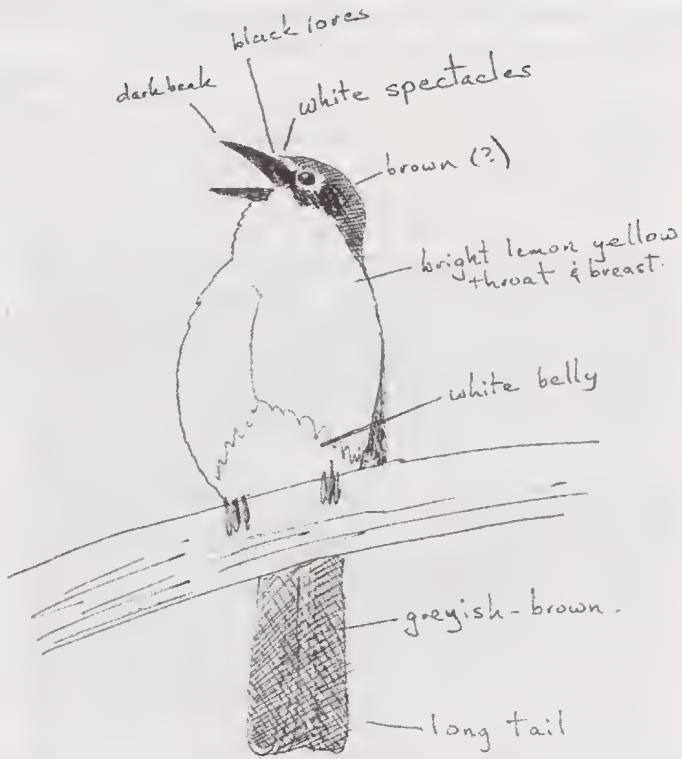 black lores
dark beak
white spectacles
brown (?)
bright lemon yellow
throat & breast.
white belly
greyish-brown.
long tail